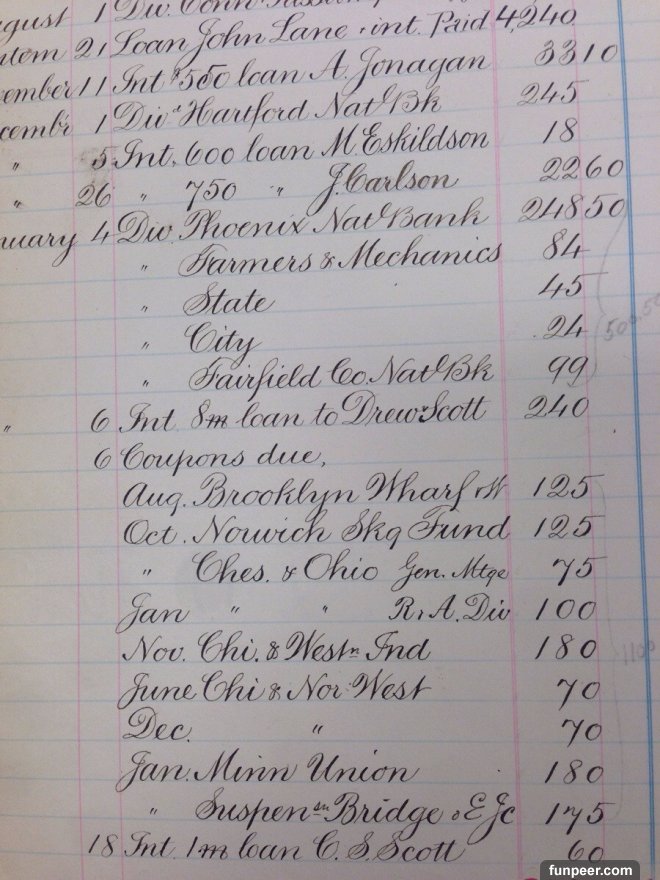 gust 1 Div. Conn
ntem 21 Loan John Lane & int. Paid 4,240
ember 11 Int $550 loan A. Jonagan 33 10
cembr 1 Divd Hartford Natl Bk 245
" 5 Int. 600 loan M. Eskildson 18
" 26 " 750 " J. Carlson 22 60
nuary 4 Div. Phoenix Natl Bank 248 50
" Farmers & Mechanics 84
" State 45
" City 24
" Fairfield Co. Natl Bk 99
" 6 Int 8m loan to Drew Scott 240
6 Coupons due,
Aug. Brooklyn Wharf & W 125
Oct. Norwich Skg Fund 125
" Ches. & Ohio Gen. Mtge 75
Jan " " R & A. Div 100
Nov. Chi. & Westn Ind 180
June Chi & Nor West 70
Dec. " 70
Jan. Minn Union 180
" Suspensn Bridge & E Jc 175
18 Int. 1m loan C. S. Scott 60
funpeer.com